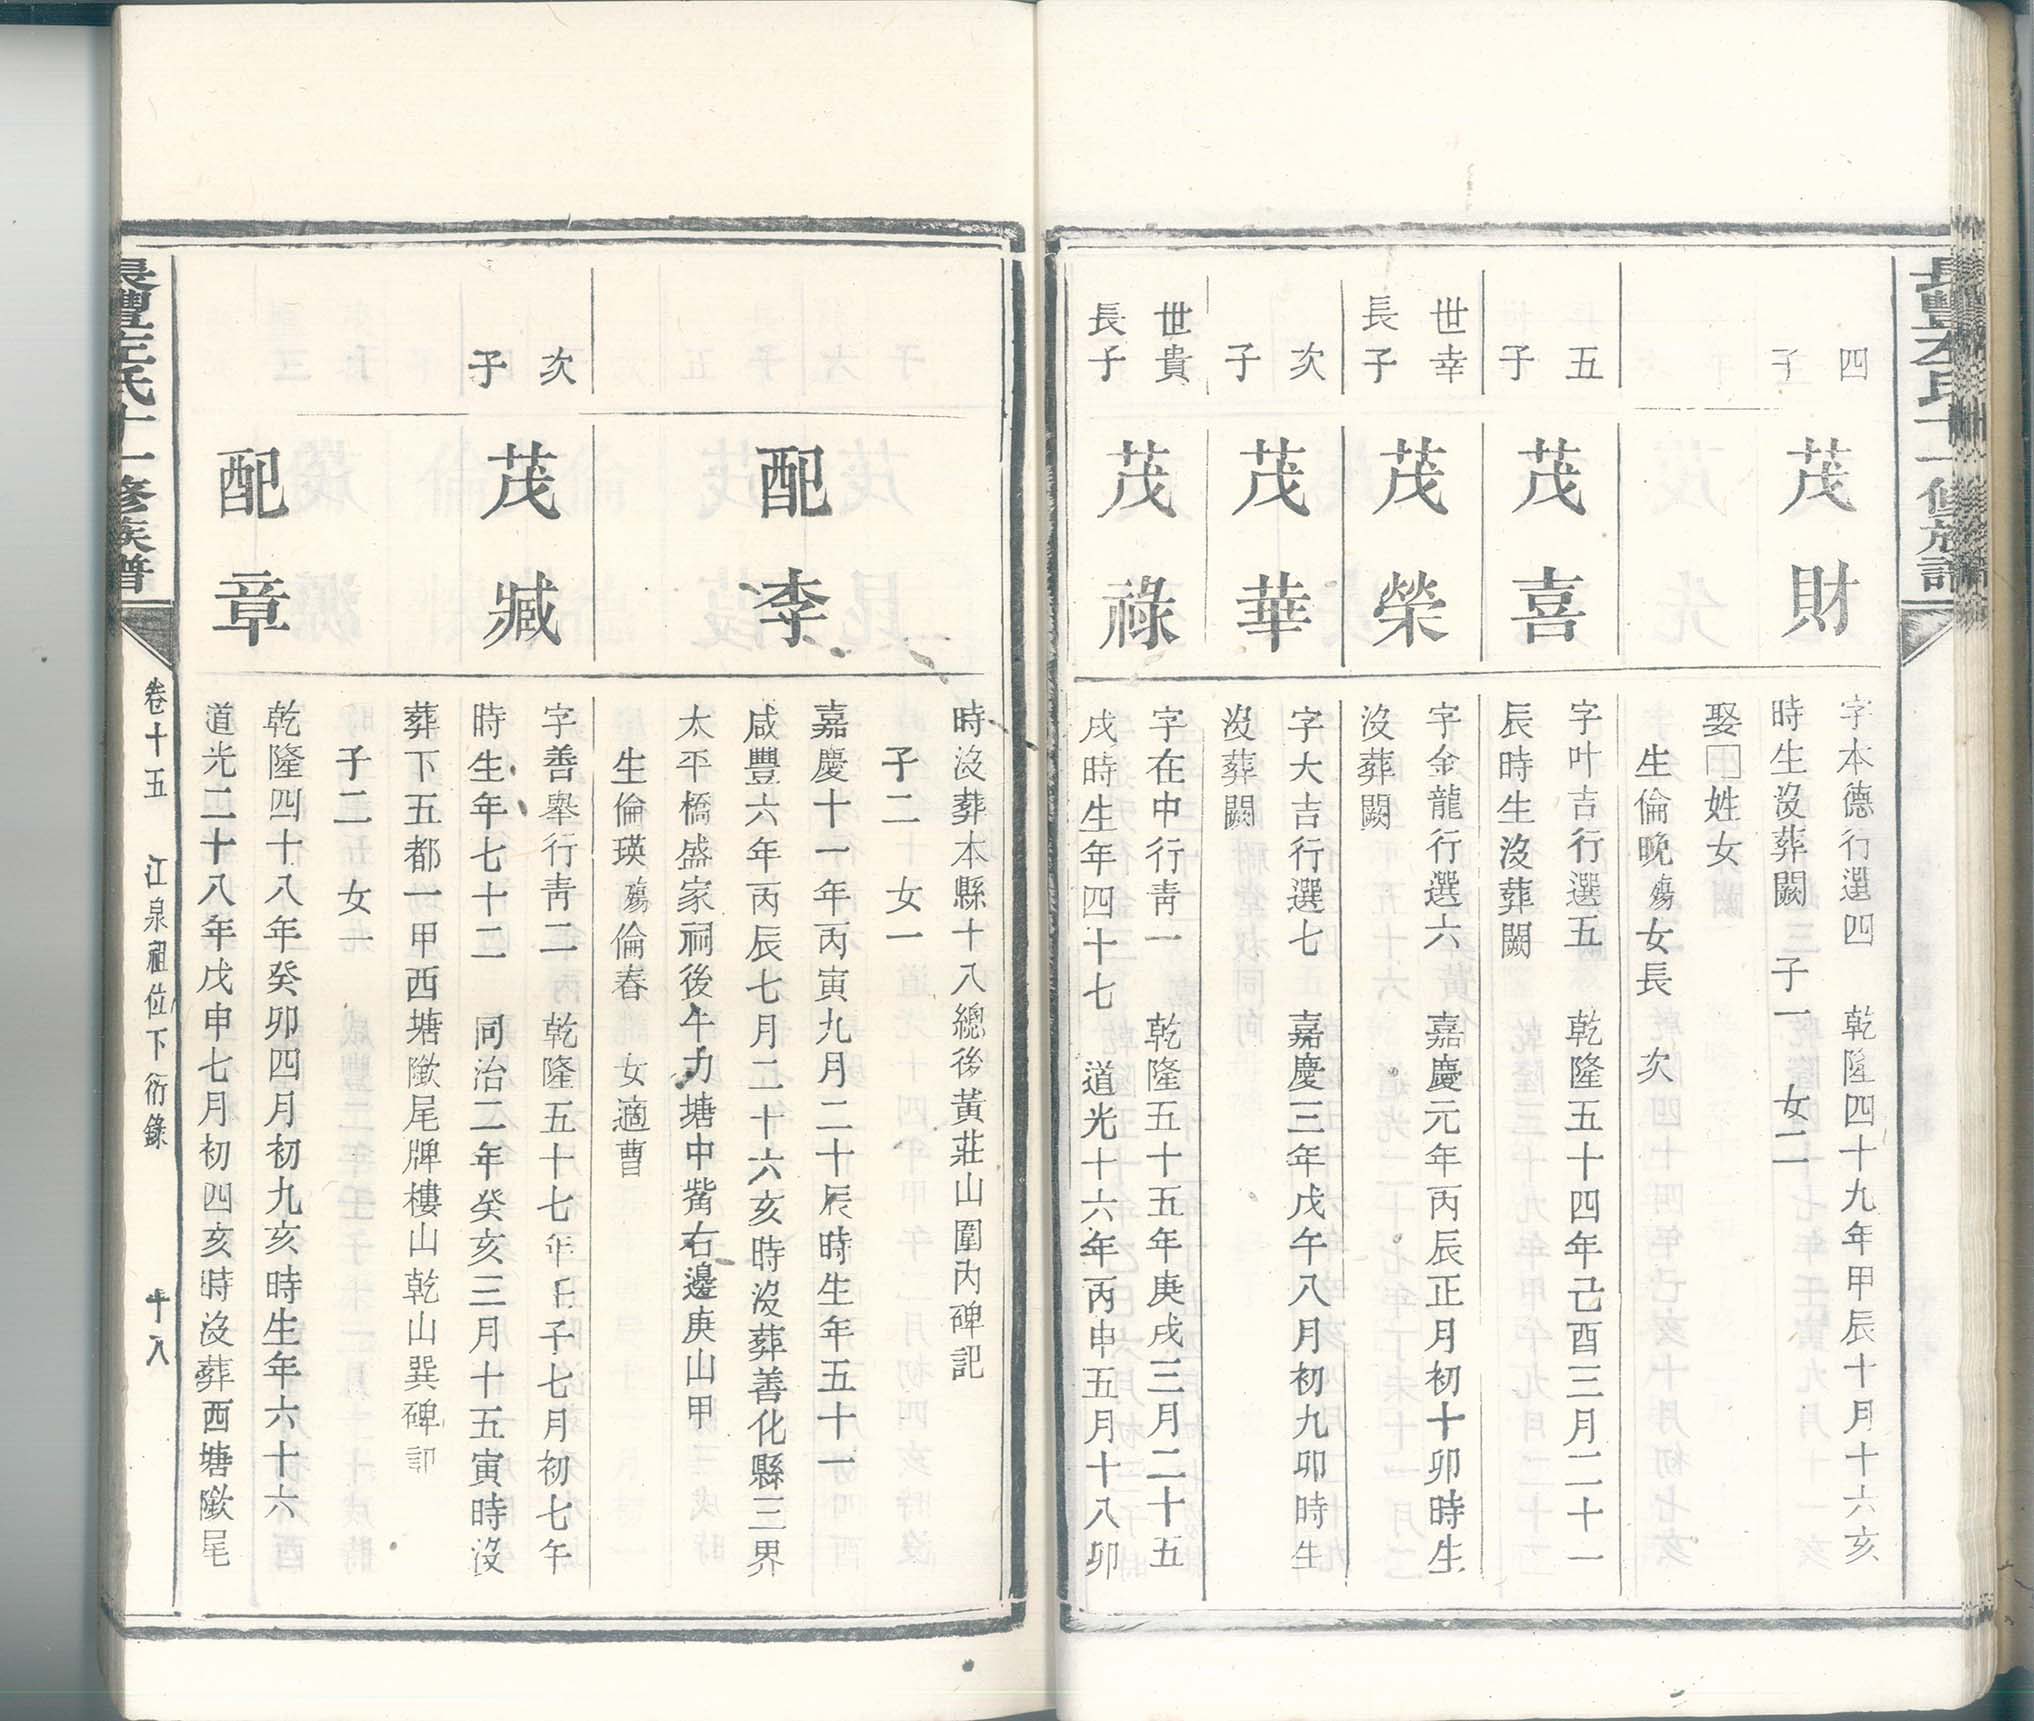 四
子
茂財
字本德行選四 乾隆四十九年甲辰十月十六亥
時生沒葬闕 子一 女二
娶□姓女
生倫晩殤女長 次
五
子
茂喜
字叶吉行選五 乾隆五十四年己酉三月二十一
辰時生沒葬闕
世幸
長子
茂榮
字金龍行選六 嘉慶元年丙辰正月初十卯時生
沒葬闕
次
子
茂華
字大吉行選七 嘉慶三年戊午八月初九卯時生
沒葬闕
世貴
長子
茂祿
字在中行靑一 乾隆五十五年庚戌三月二十五
戌時生年四十七 道光十六年丙申五月十八卯
時沒葬本縣十八總後黃莊山圍內碑記
配李
子二 女一
嘉慶十一年丙寅九月二十辰時生年五十一
咸豐六年丙辰七月二十六亥時沒葬善化縣三界
太平橋盛家祠後牛力塘中嘴右邊庚山甲
生倫瑛殤倫春 女適曹
次
子
茂臧
字善舉行靑二 乾隆五十七年壬子七月初七午
時生年七十二 同治二年癸亥三月十五寅時沒
葬下五都一甲西塘尾牌樓山乾山巽碑記
配章
子二 女一
乾隆四十八年癸卯四月初九亥時生年六十六
道光二十八年戊申七月初四亥時沒葬西塘尾
長豐左氏十一修族譜
卷十五 江泉祖位下衍錄 十八